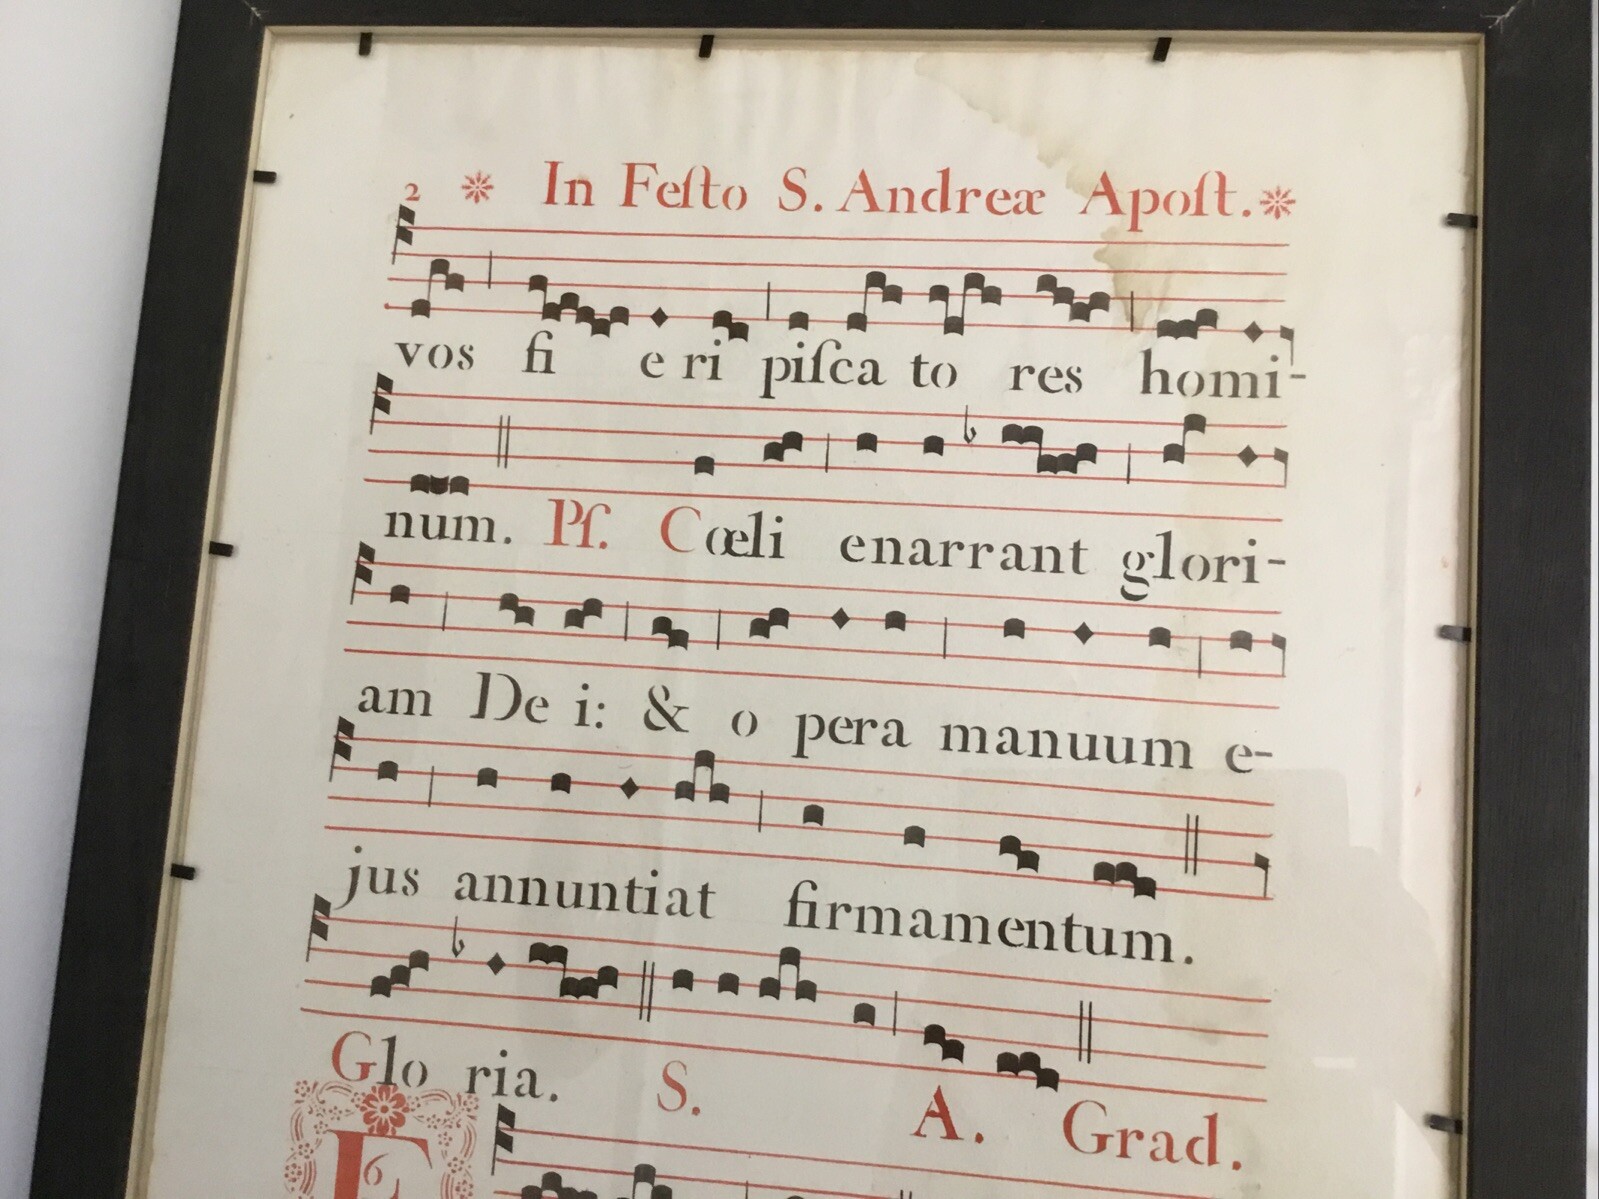 2 * In Feſto S. Andreæ Apoſt. *
vos fi e ri piſca to res homi-
num. Pſ. Cœli enarrant glori-
am De i: & o pera manuum e-
jus annuntiat firmamentum.
Glo ria. S. A. Grad.
E
6